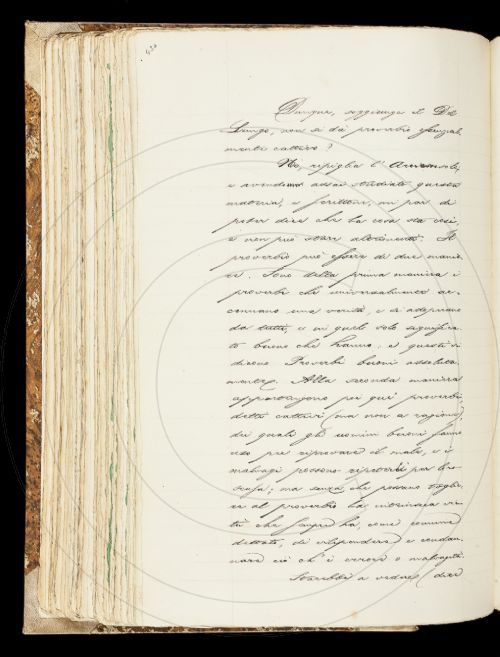 Dunque, soggiunge il Del
Lungo, non si dà proverbio essenzial
mente cattivo?
No, ripiglia l'
e avendoci assai studiato questa
materia, e scrittori, mi par di
poter dire che la cosa sta così
e non può stare altrimenti. Il
proverbio può essere di due manie
re. Sono della prima maniera i
proverbi che universalmente ac-
cennano una verità, e si adoprano
da tutti, e in quel solo significa-
to buono che hanno, e questi si
dicono Proverbi buoni assoluta
mente. Alla seconda maniera
appartengono poi quei proverbi,
detti cattivi (ma non a ragione)
dei quali gli uomini buoni fanno
uso per riprovare il male, e i
malvagi possono ripeterli per loro
scusa; ma senza che possano toglie-
re al proverbio la intrinseca vir-
tù che sempre ha, come comune
dettato, di vilipendere e condan-
nare ciò ch'è errore o malvagità.
Starebbe a vedere (dice